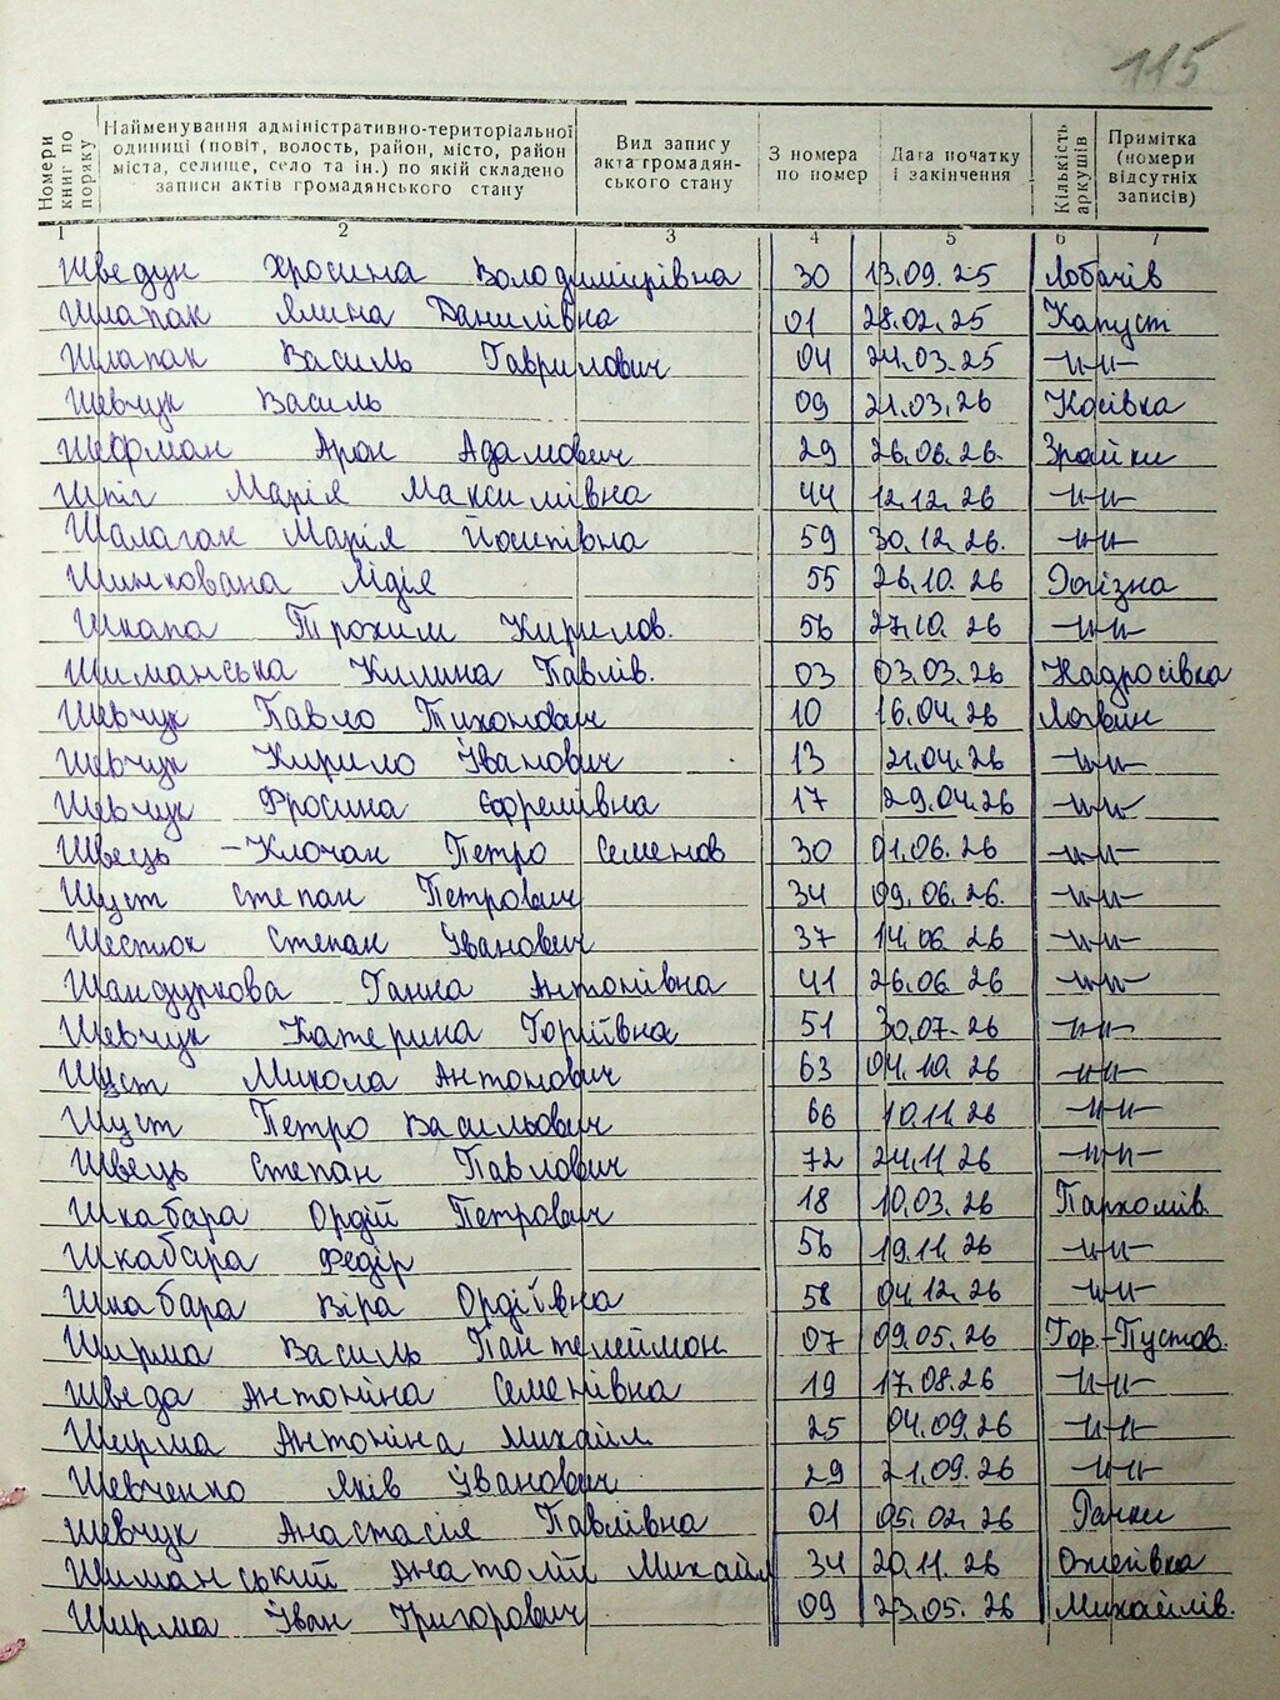 115
Номери книг по поряку
Найменування адміністративно-територіальної одиниці (повіт, волость, район, місто, район міста, селище, село та ін.) по якій складено записи актів громадянського стану
Вид запису акта громадян-ського стану
З номера по номер
Дата початку і закінчення
Кількість аркушів
Примітка (номери відсутніх записів)
1 2 3 4 5 6 7
Шведун Хросина Володимирівна 30 13.09.25 Лобачів
Шлапак Ялина Данилівна 01 28.02.25 Капуст
Шлапак Василь Гаврилович 04 24.03.25 -//-
Шевчук Василь 09 21.03.26 Косівка
Шефман Арон Адамович 29 26.06.26. Зрайки
Шпіг Марія Максимівна 44 12.12.26 -//-
Шалаган Марія Йосипівна 59 30.12.26. -//-
Шинкована Лідія 55 26.10.26
Шкапа Трохим Кирилов. 56 27.10.26 -//-
Шиманська Килина Павлів. 03 03.03.26 Надросівка
Шевчук Павло Тихонович 10 16.04.26 Логвин
Шевчук Кирило Іванович 13 21.04.26 -//-
Шевчук Фросина Єфремівна 17 29.04.26 -//-
Швець - Клочан Петро Семенов 30 01.06.26 -//-
Шуст Степан Петрович 34 09.06.26. -//-
Шестюк Степан Іванович 37 14.06.26 -//-
Шандуркова Ганна Антонівна 41 26.06.26 -//-
Шевчук Катерина Горпіївна 51 30.07.26 -//-
Шуст Микола Антонович 63 04.10.26 -//-
Шуст Петро Васильович 66 10.11.26 -//-
Швець Степан Павлович 72 24.11.26 -//-
Шкабара Ордій Петрович 18 10.03.26 Пархомів.
Шкабара Федір 56 19.11.26 -//-
Шкабара Віра Ордіївна 58 04.12.26 -//-
Ширма Василь Пантелеймон. 07 09.05.26 Гор.-Пустов.
Шведа Антоніна Семенівна 19 17.08.26 -//-
Ширма Антоніна Михайл. 25 04.09.26 -//-
Шевченко Яків Іванович 29 21.09.26 -//-
Шевчук Анастасія Павлівна 01 05.02.26 Гайки
Шиманський Анатолій Михайл 34 20.11.26
Ширма Іван Григорович 09 23.05.26 Михайлів.